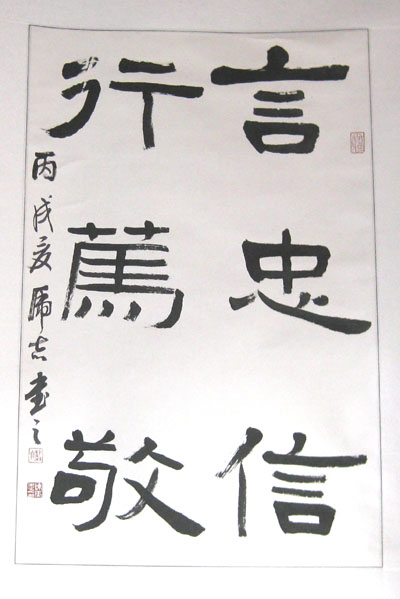 言忠信
行篤敬
丙戌夏書之